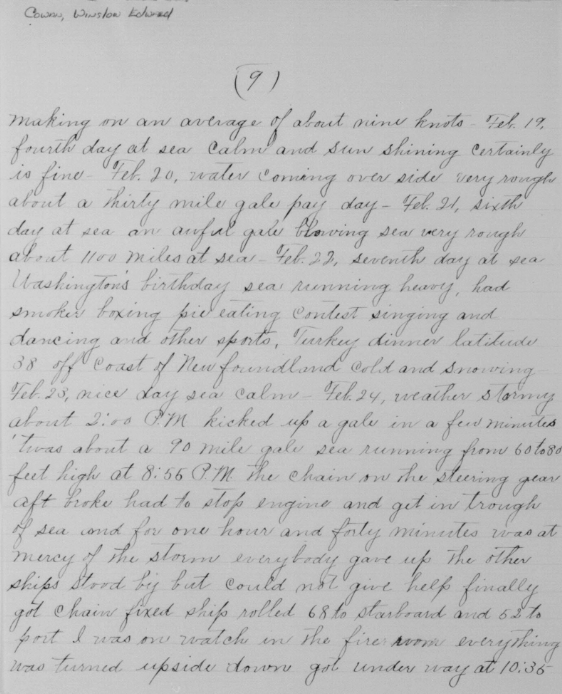 Cowan, Winston Edward
(9)
making on an average of about nine knots - Feb. 19,
fourth day at sea calm and sun shining certainly
is fine - Feb. 20, water coming over side very rough
about a thirty mile gale pay day - Feb. 21, sixth
day at sea an awful gale blowing sea very rough
about 1100 miles at sea - Feb. 22, seventh day at sea
Washington's birthday sea running heavy, had
smoker boxing pie eating contest singing and
dancing and other sports, Turkey dinner latitude
38 off coast of Newfoundland cold and snowing
Feb. 23, nice day sea calm - Feb. 24, weather stormy
about 2:00 P.M. kicked up a gale in a few minutes
'twas about a 90 mile gale sea running from 60 to 80
feet high at 8:55 P.M. the chain on the steering gear
aft broke had to stop engine and get in trough
of sea and for one hour and forty minutes was at
mercy of the storm everybody gave up the other
ships stood by but could not give help finally
got chain fixed ship rolled 68 to starboard and 52 to
port I was on watch in the fire room everything
was turned upside down got under way at 10:35